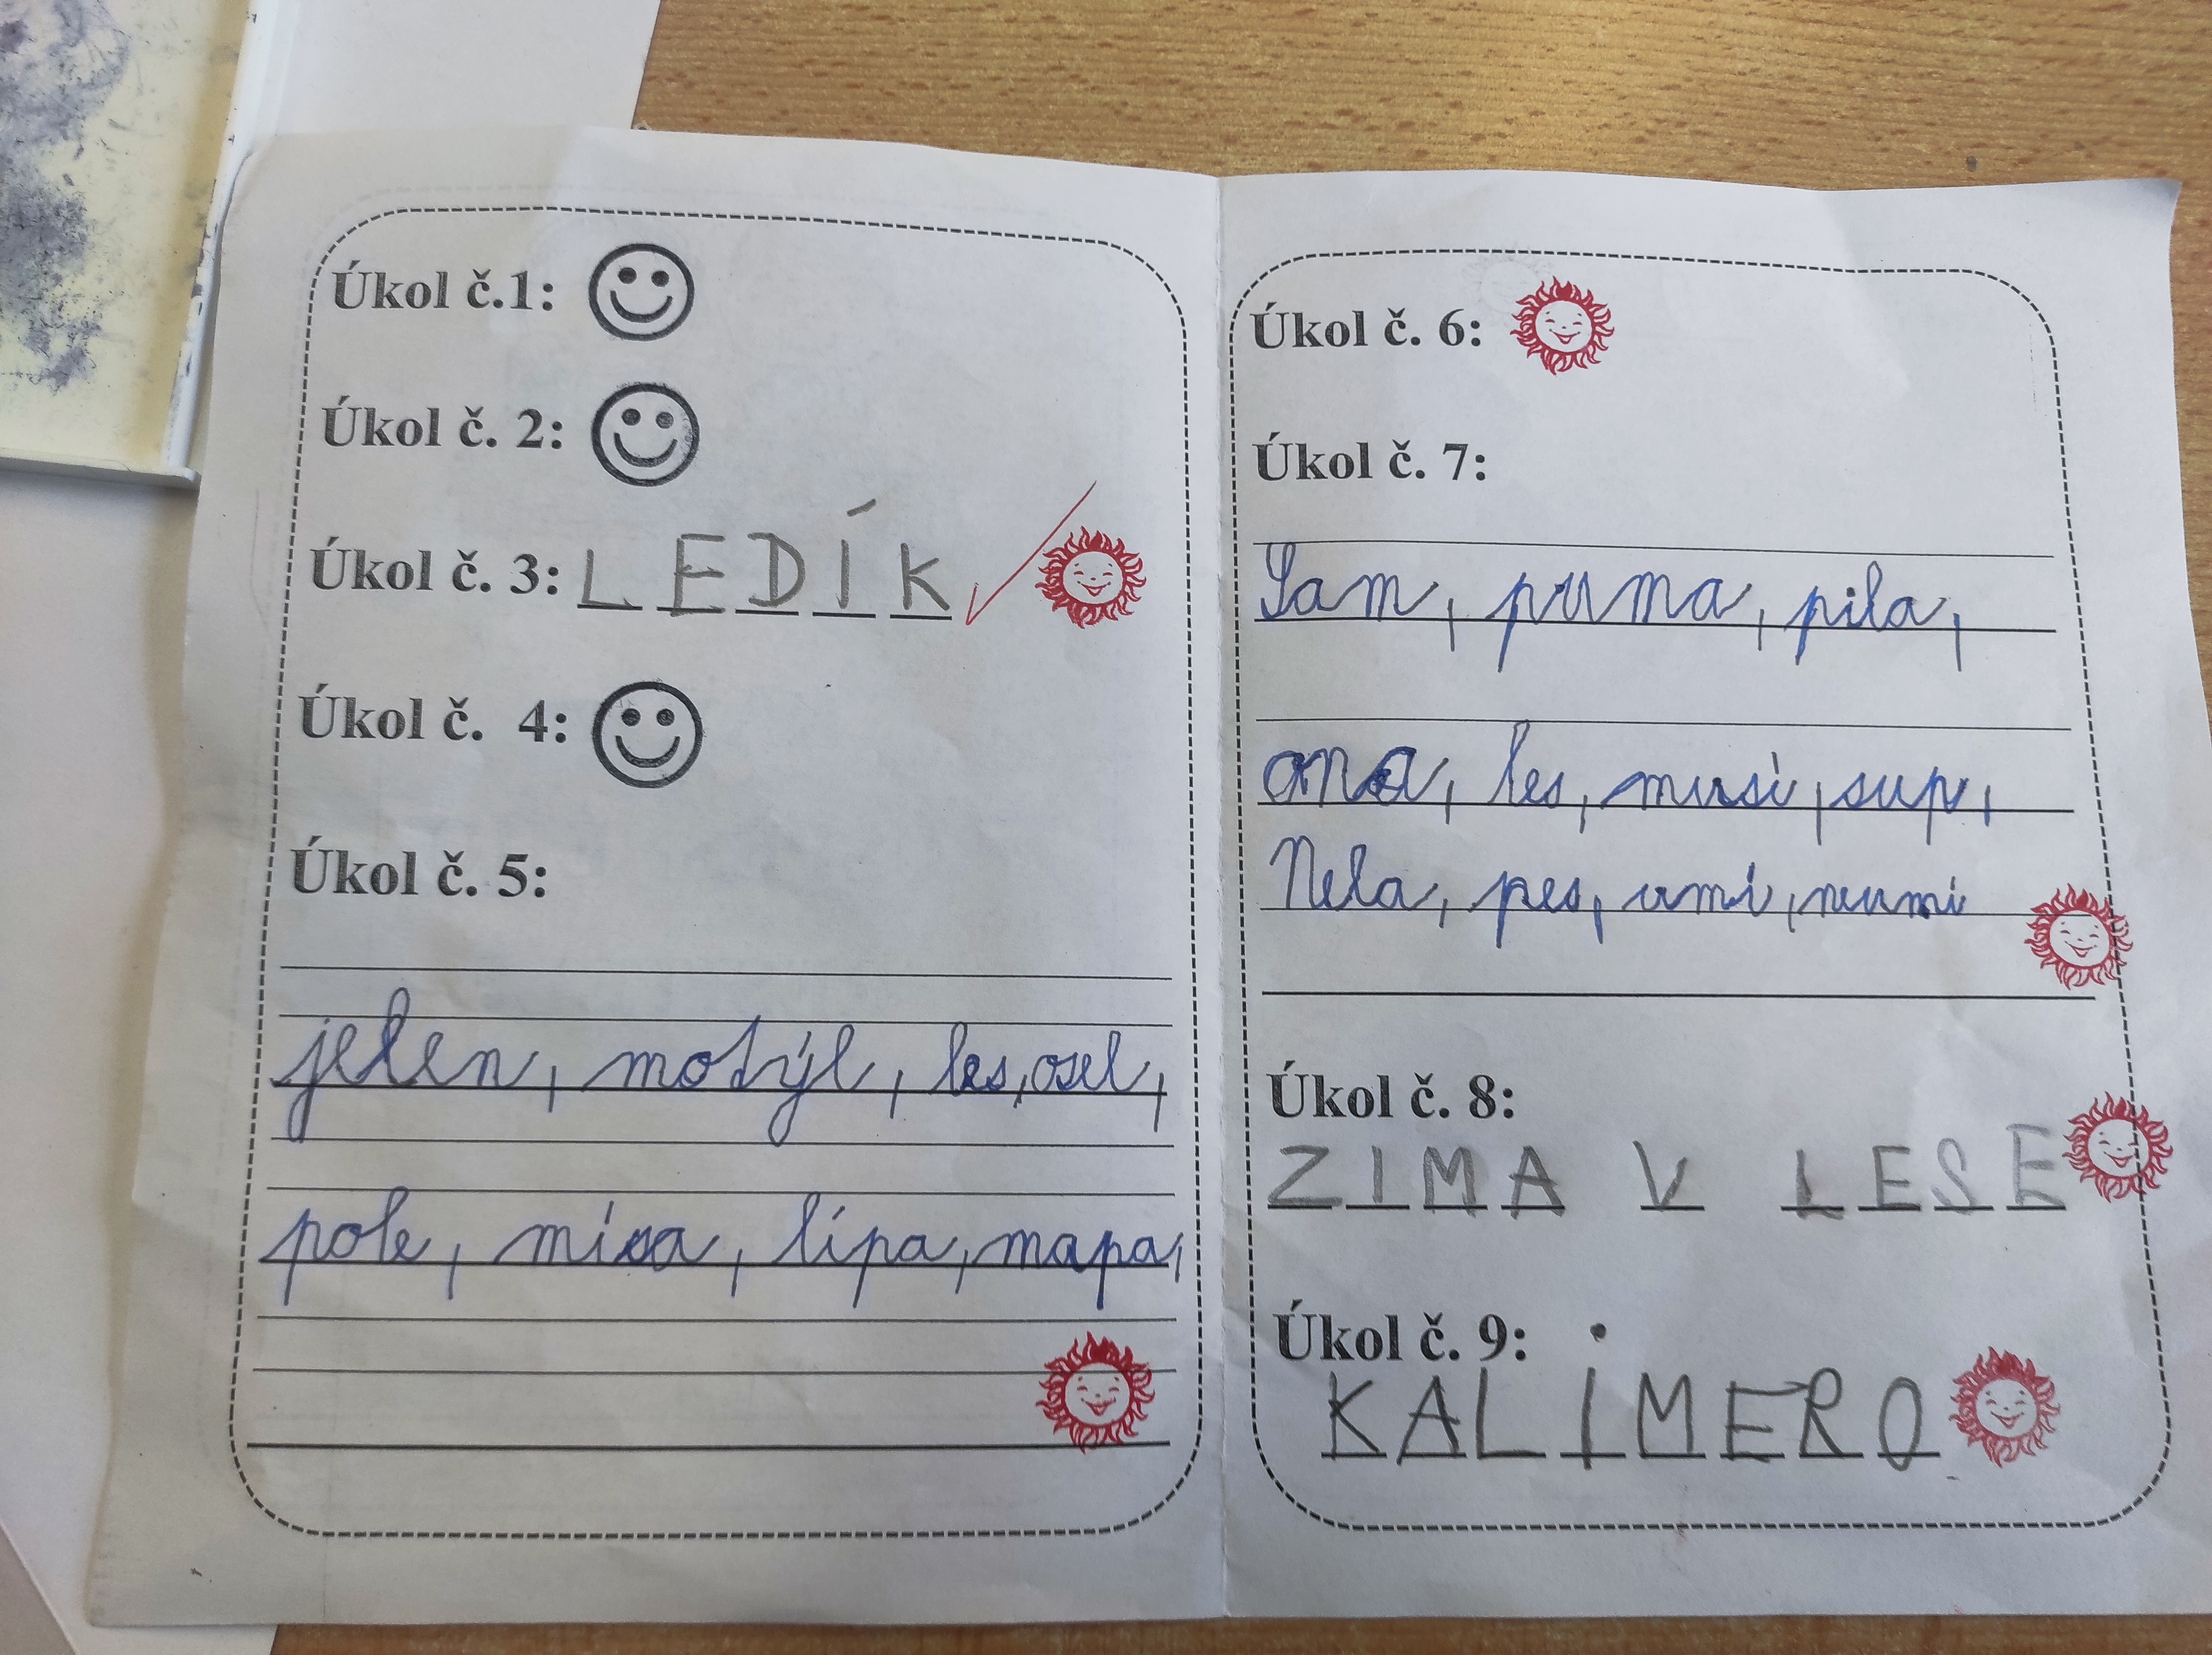 Úkol č.1:
Úkol č. 2:
Úkol č. 3: LEDÍK
Úkol č. 4:
Úkol č. 5:
jelen, motýl, les, osel,
pole, mísa, lípa, mapa,
Úkol č. 6:
Úkol č. 7:
Sam, puma, pila,
ona, les, musi, sup,
Nela, pes, umi, neumi
Úkol č. 8:
ZIMA V LESE
Úkol č. 9:
KALIMERO